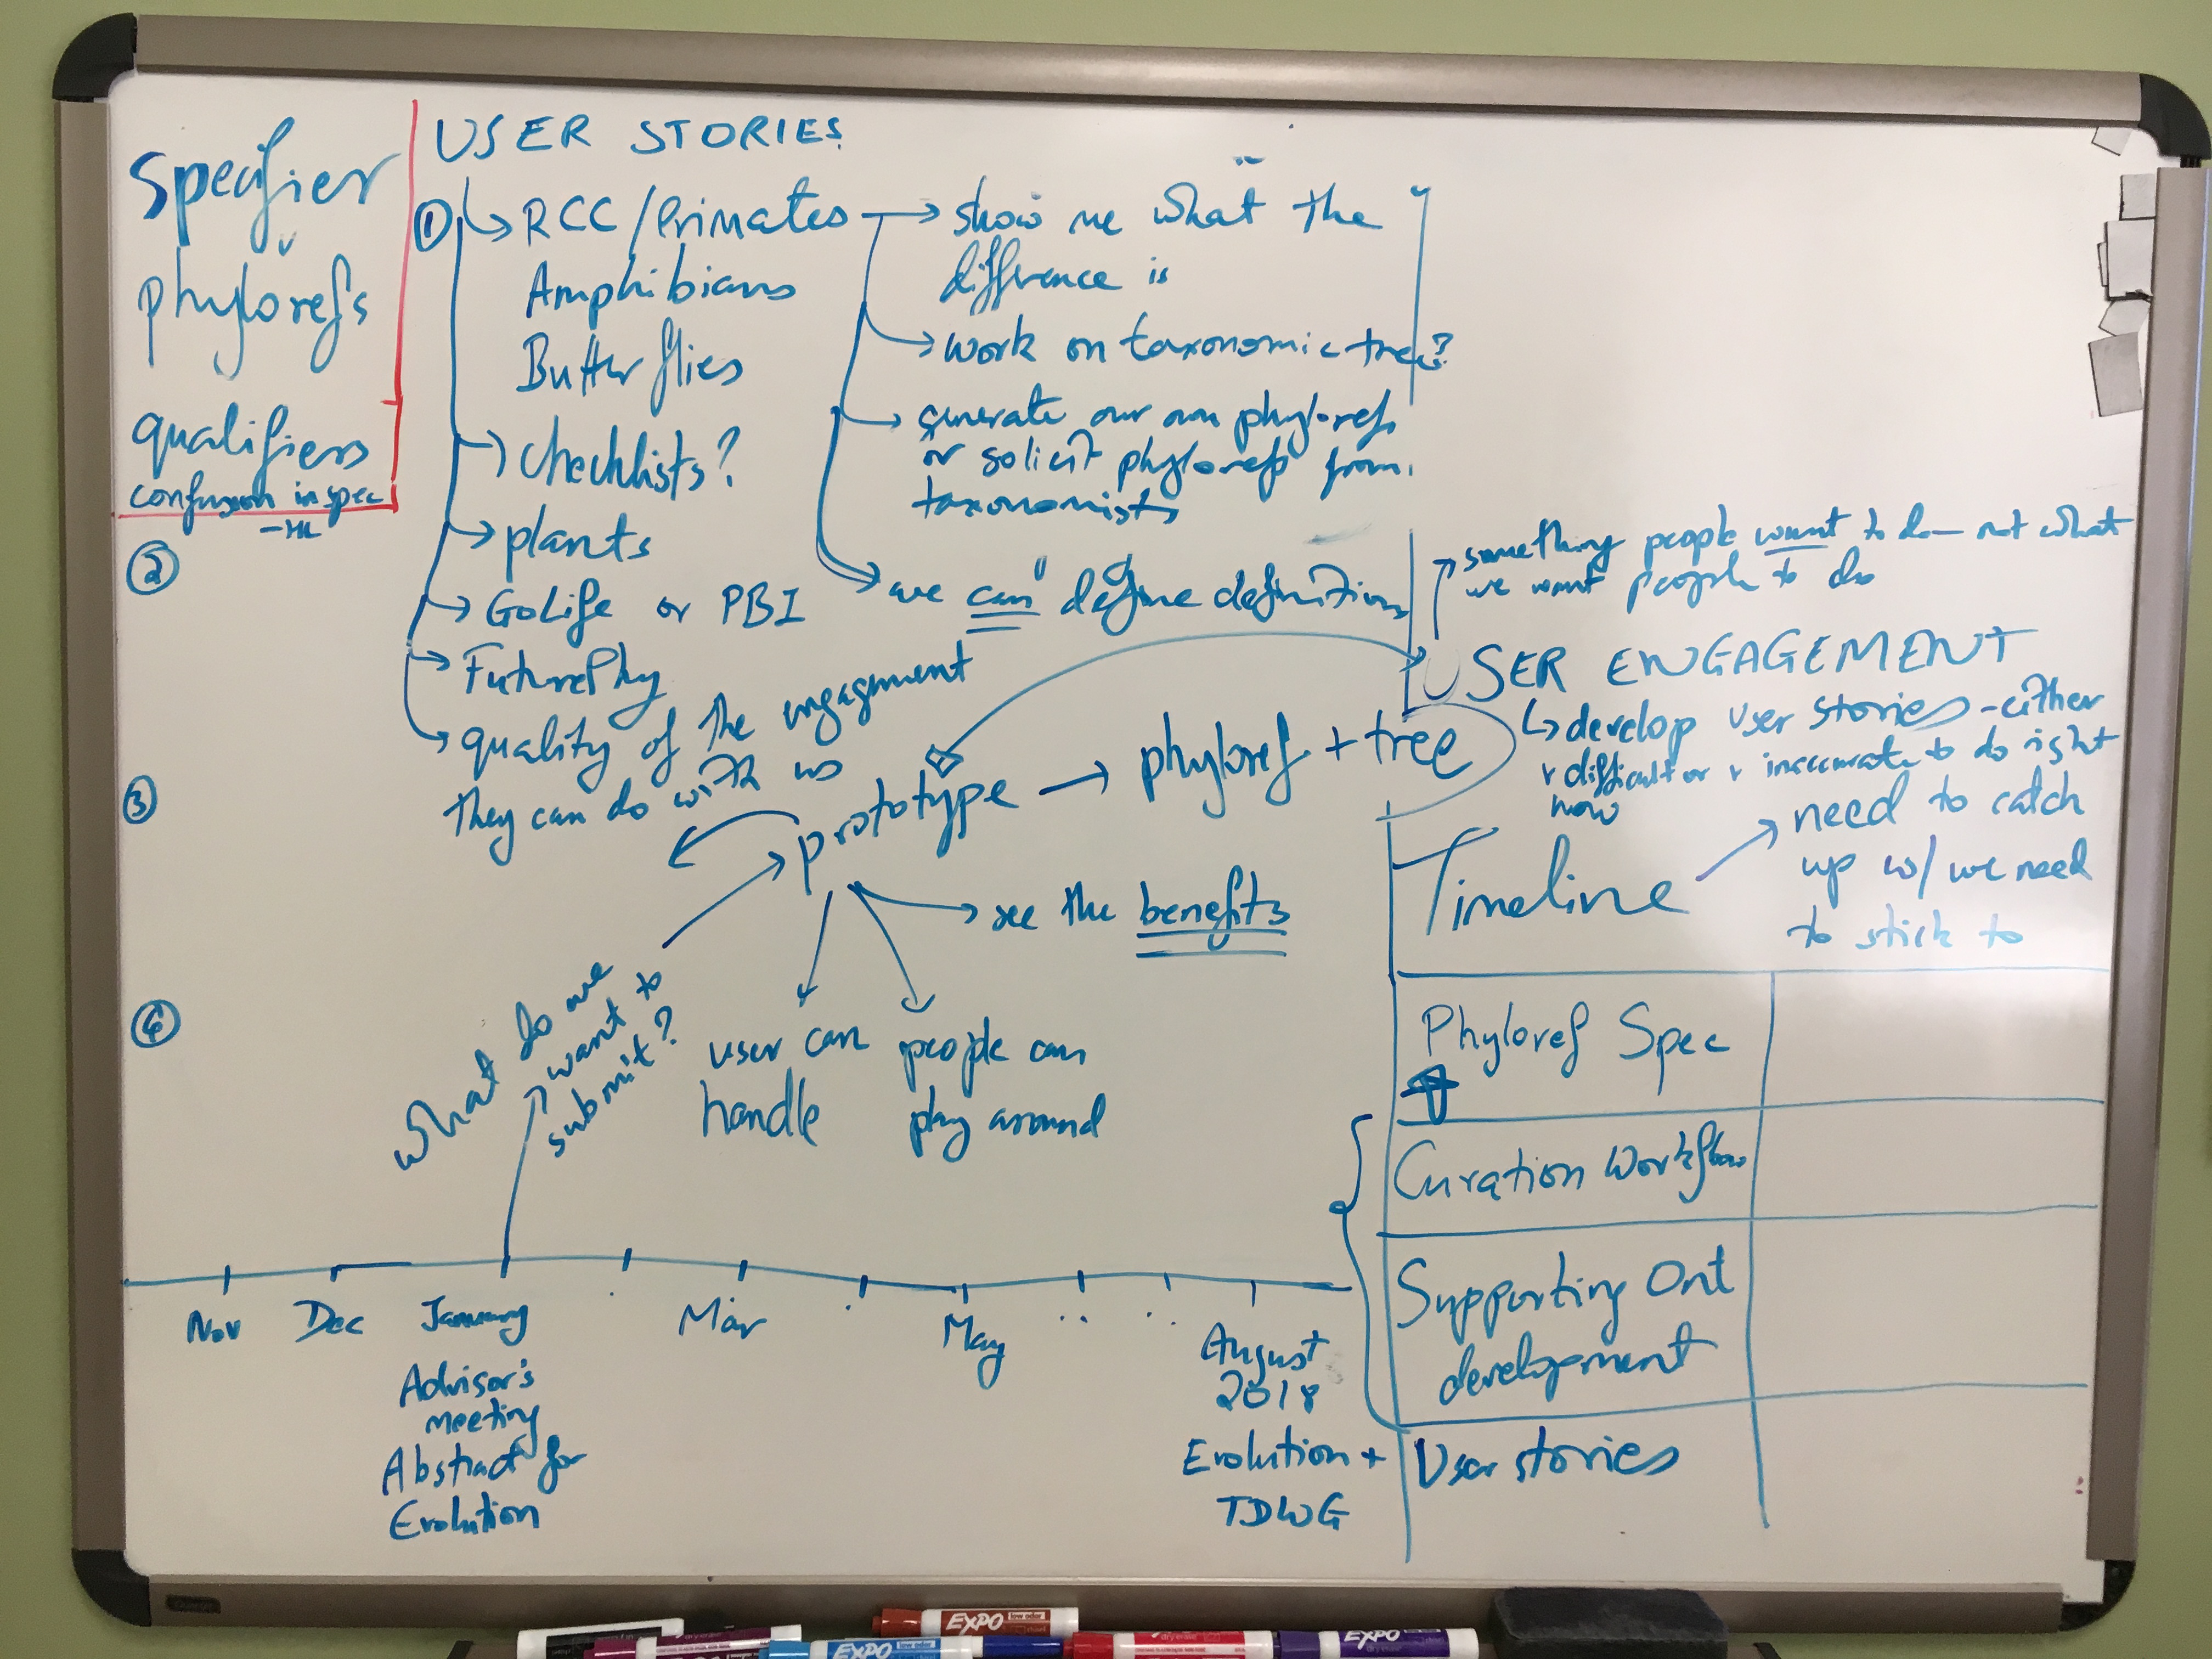 Specifier
phylorefs
qualifiers
confusion in spec
USER STORIES
① RCC/Primates
Amphibians
Butterflies
checklists?
plants
GoLife or PBI
FuturePhy
quality of the engagement
they can do with us
show me what the
difference is
work on taxonomic tree?
generate our own phylorefs
or solicit phylorefs from
taxonomists
we can define definitions
②
③
④
something people want to do — not what
we want people to do
USER ENGAGEMENT
develop user stories - either
difficult or inaccurate to do right
now
prototype → phyloref + tree
see the benefits
user can
handle
people can
play around
What do we
want to
submit?
Timeline
need to catch
up w/ we need
to stick to
Phyloref Spec
Curation Workflow
Supporting Ont
development
User stories
Nov Dec January Mar May August
2018
Advisor's
meeting
Abstract for
Evolution
Evolution +
TDWG
EXPO low odor
EXPO
EXPO